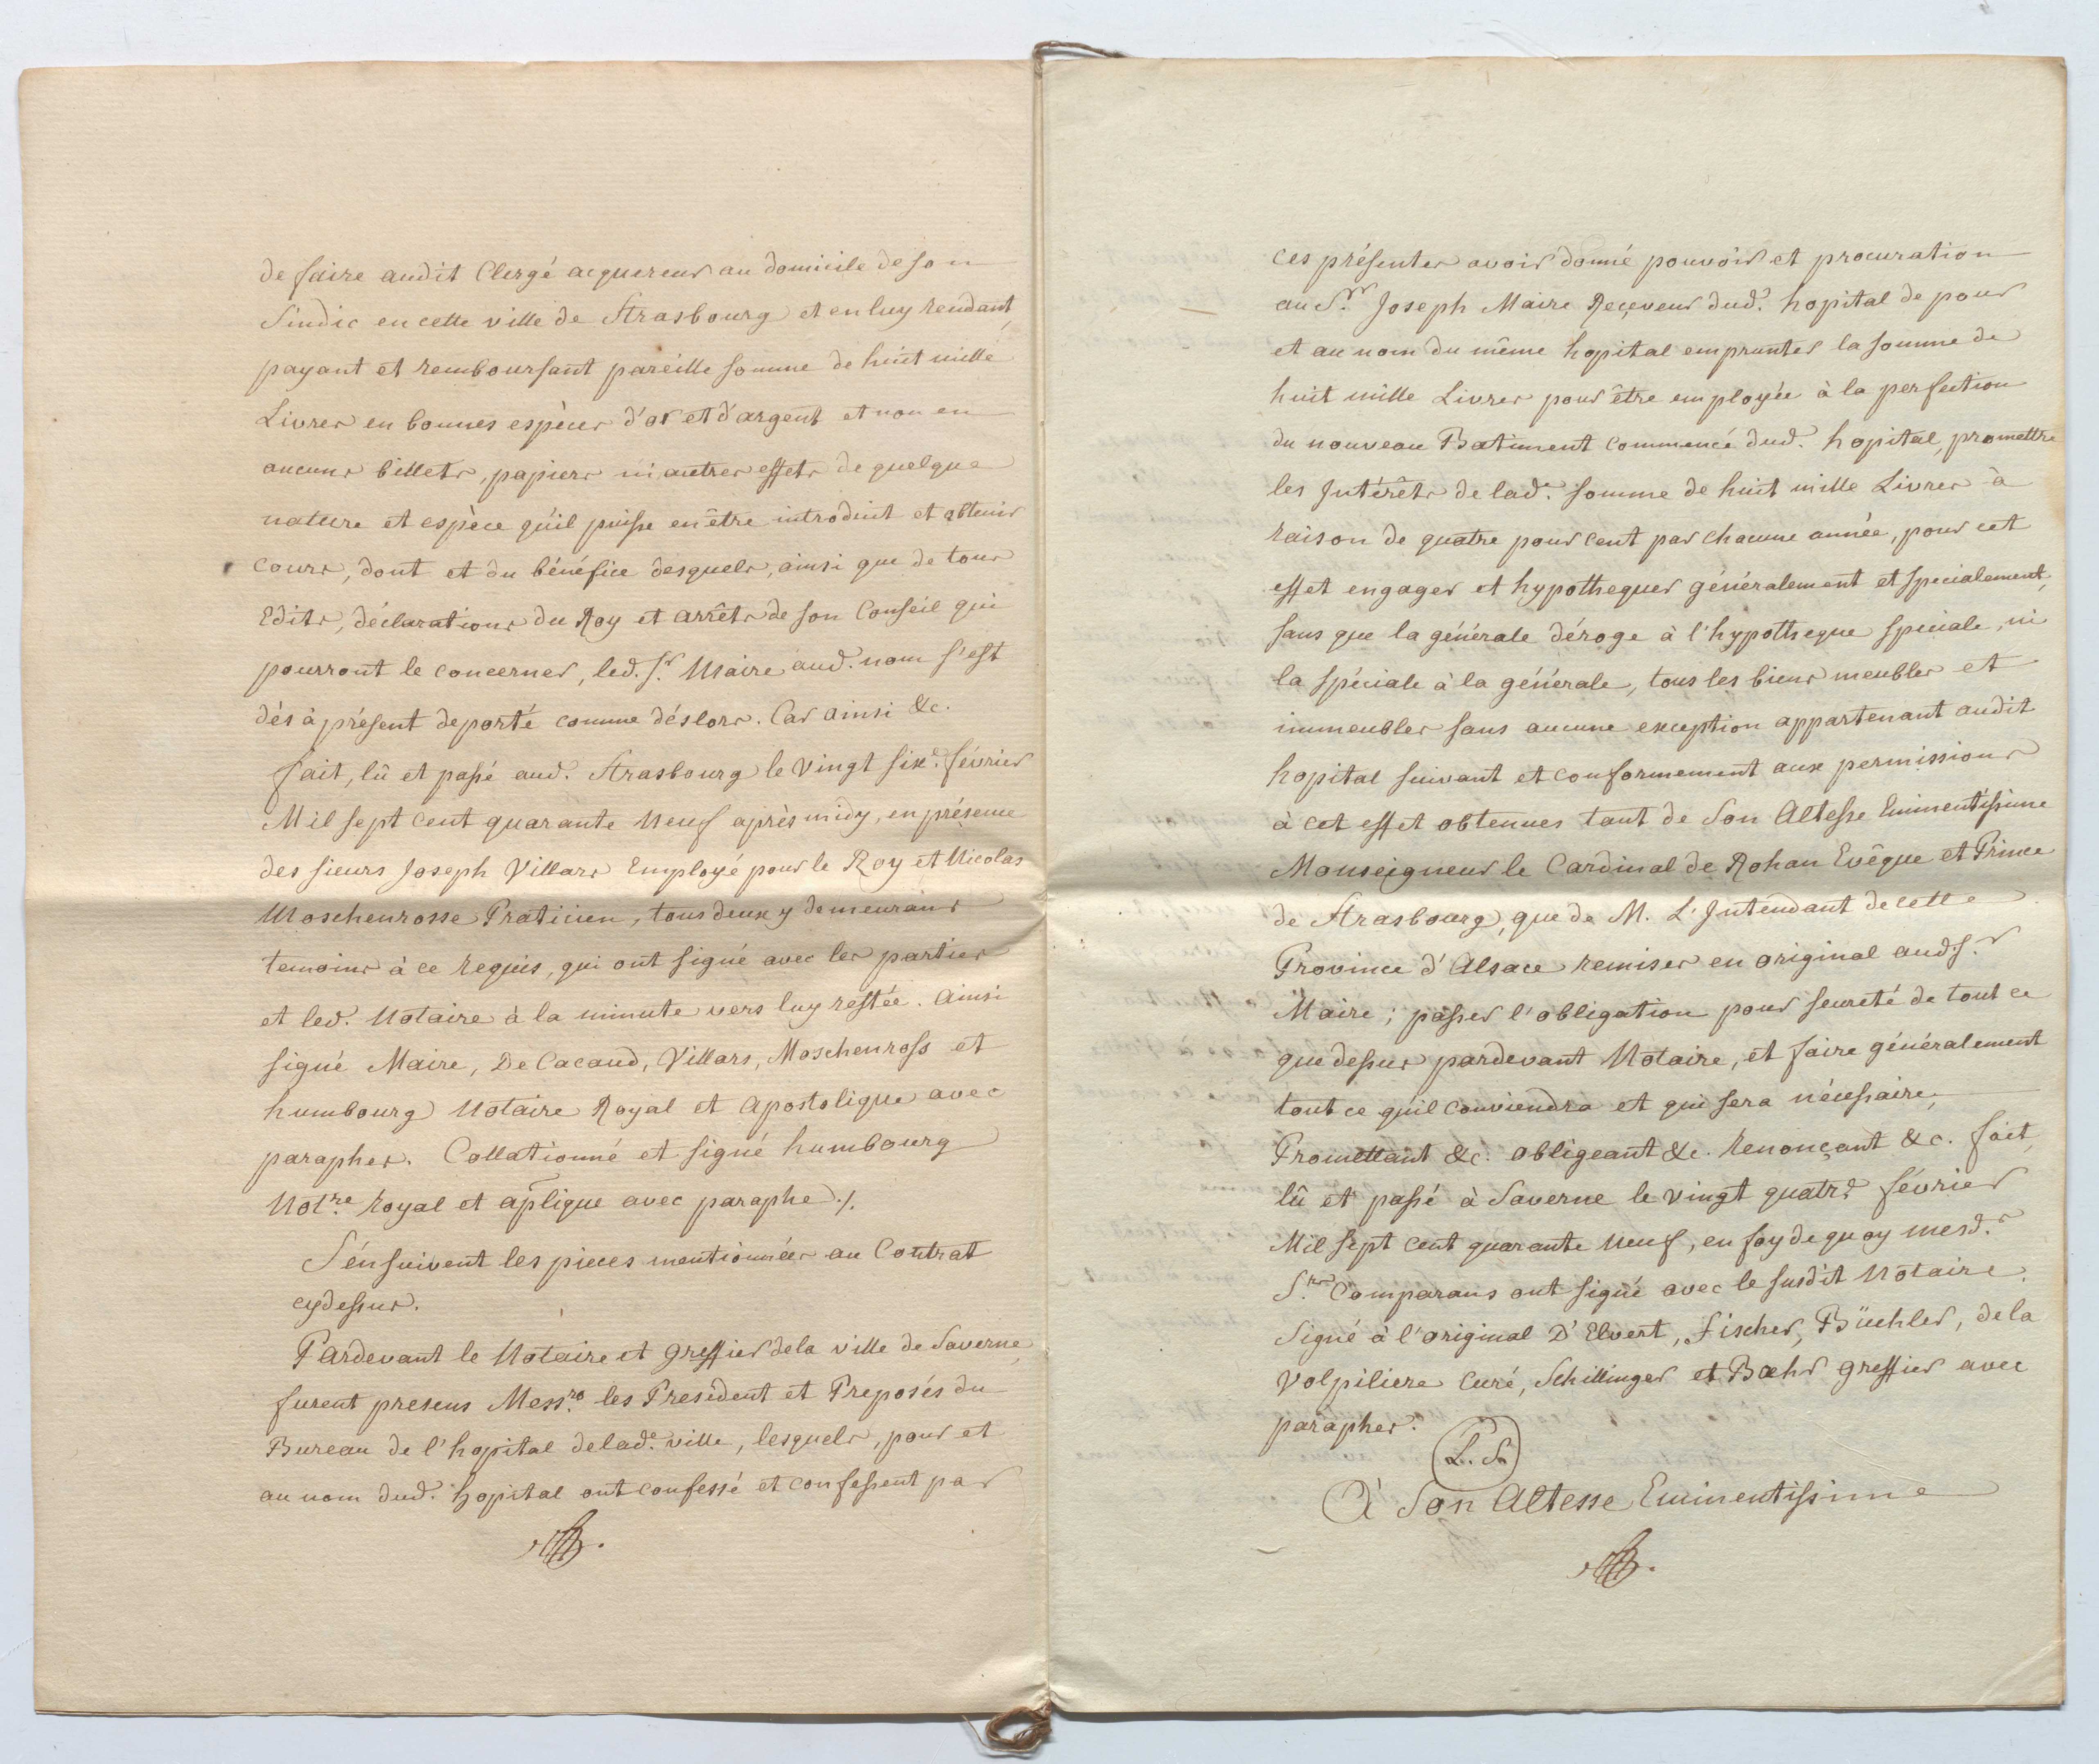 de faire audit Clergé acquereur au domicile de son
Sindic en cette ville de Strasbourg et en luy rendant,
payant et remboursant pareille somme de huit mille
Livres en bonnes espèces d'or et d'argent et non en
aucuns billets, papiers ni autres effets de quelque
nature et espèce qu'il puisse en être introduit et obtenir
cours, dont et du bénéfice desquels, ainsi que de tous
Edits, déclarations du Roy et arrêts de son Conseil qui
pourront le concerner, led. Sr. Maire aud. nom s'est
dés à présent deporté comme déslors. Car ainsi &c.
fait, lû et passé aud. Strasbourg le vingt sixe. février
Mil sept cent quarante neuf après midy, en présence
des sieurs Joseph Villars Employé pour le Roy et Nicolas
Moschenrosse Praticien, tous deux y demeurans
temoins à ce requis, qui ont signé avec les parties
et led. Notaire à la minute vers luy restée. Ainsi
signé Maire, De Cacaud, Villars, Moschenross et
humbourg Notaire Royal et apostolique avec
paraphes. Collationné et signé humbourg
Notre. royal et aplique avec paraphe ./.
S'énsuivent les pieces mentionnées au Contrat
cydessus.
Pardevant le Notaire et greffier de la ville de Saverne,
furent presens Messrs. les President et Preposés du
Bureau de l'hopital de lade. ville, lesquels, pour et
au nom dud. hopital ont confessé et confessent par
ces présentes avoir donné pouvoir et procuration
au Sr. Joseph Maire Reçeveur dud. hopital de pour
et au nom du même hopital emprunter la somme de
huit mille Livres pour être employée à la perfection
du nouveau Batiment commencé dud. hopital, promettre
les Intérêts de lade. somme de huit mille Livres à
raison de quatre pour cent par chacune année, pour cet
effet engager et hypothequer généralement et specialement,
sans que la générale déroge à l'hypotheque speciale, ni
la spéciale à la générale, tous les biens meubles et
immeubles sans aucune exception appartenant audit
hopital suivant et conformement aux permissions
à cet effet obtenues tant de Son Altesse Eminentissime
Monseigneur le Cardinal de Rohan Evêque et Prince
de Strasbourg, que de M. L'Intendant de cette
Province d'Alsace remises en original aud. Sr.
Maire; passer l'obligation pour seureté de tout ce
que dessus pardevant Notaire, et faire généralement
tout ce qu'il conviendra et qui sera nécessaire;
Promettant &c. obligeant &c. Renonçant &c. fait,
lû et passé à Saverne le vingt quatre. février
Mil sept cent quarante neuf, en foy de quoy mesd.
Srs. Comparans ont signé avec le susdit Notaire.
Signé à l'original D'Elvert, fischer, Büehler, de la
Volpiliere Curé, Schillinger et Bœhr greffier avec
paraphes.
L. S.
À Son Altesse Eminentissime